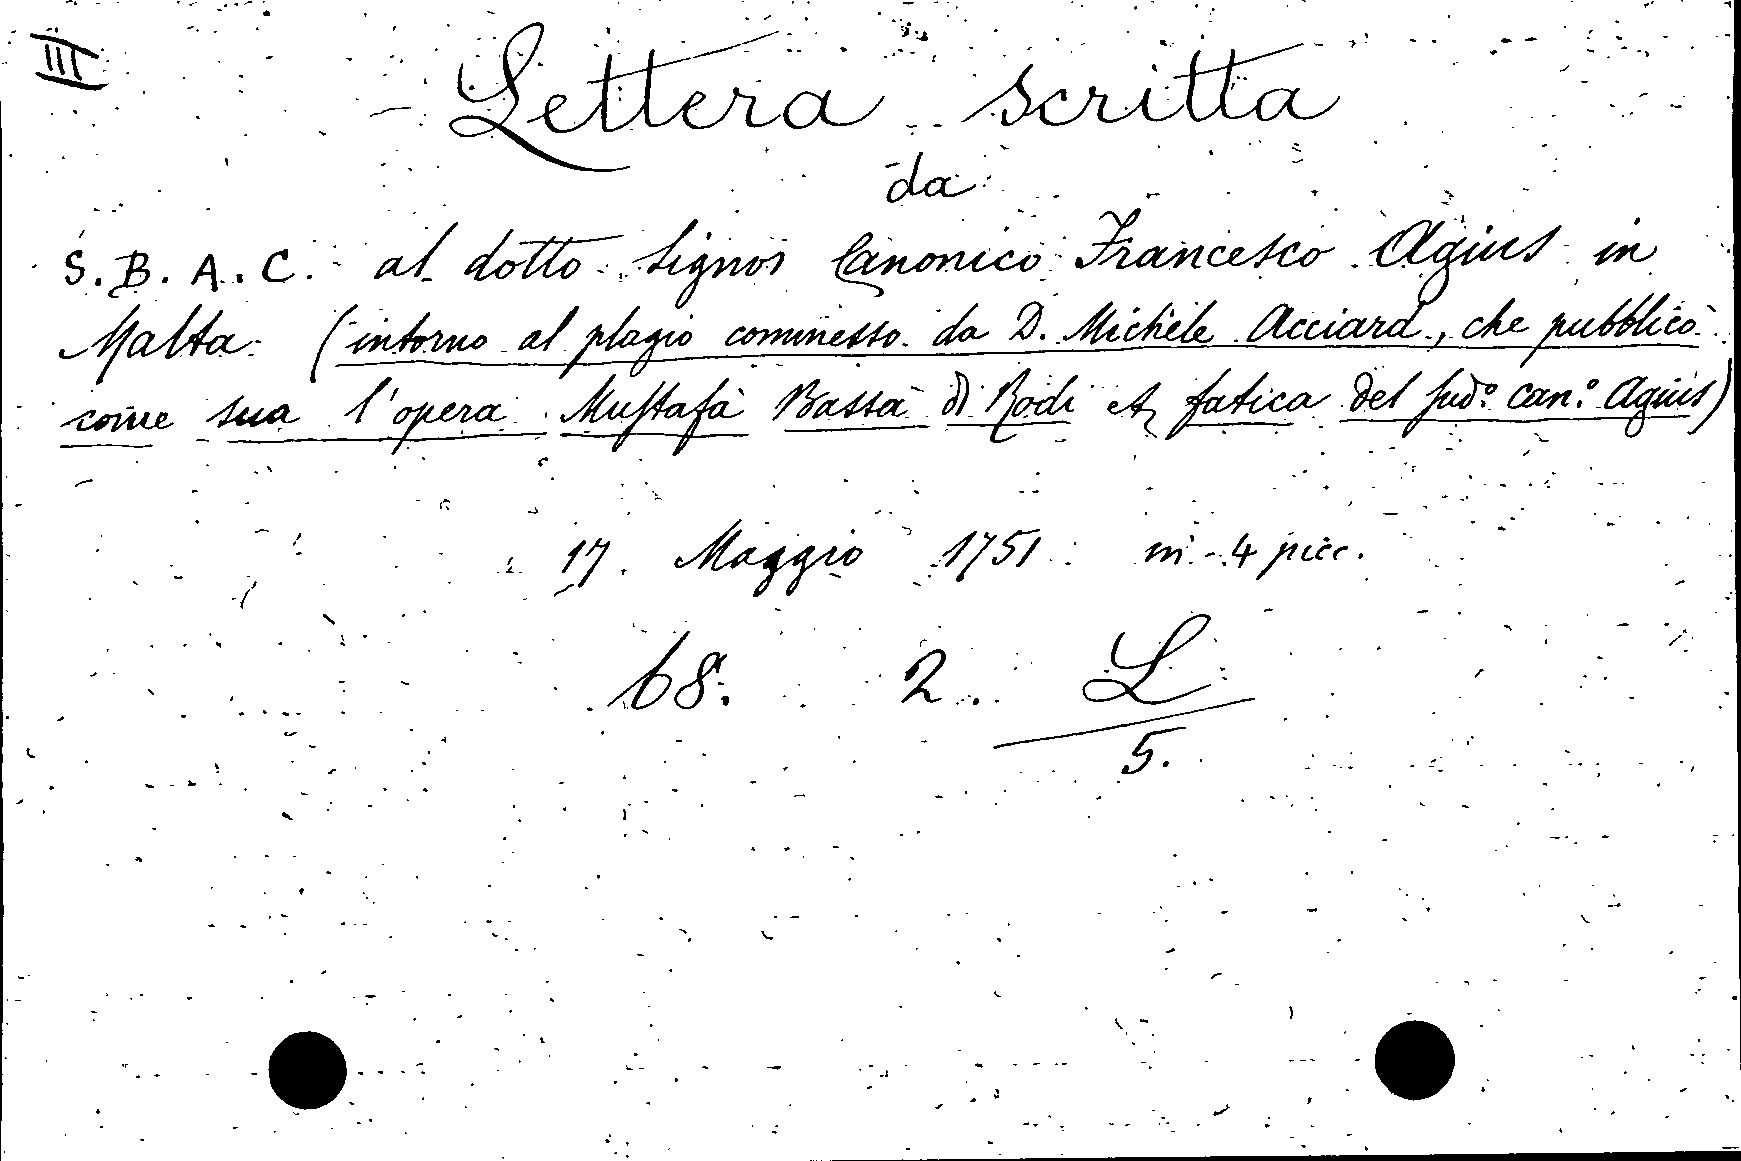 III
Lettera scritta
da
S. B. A. C. al dotto Signor Canonico Francesco Agius in
Malta (intorno al plagio commesso da D. Michele Acciard, che pubblicò
come sua l'opera Mustafà Bassà di Rodi et fatica del sud.º can.º Agius)
17 Maggio 1751 in-4 picc.
68. 2. L
5.